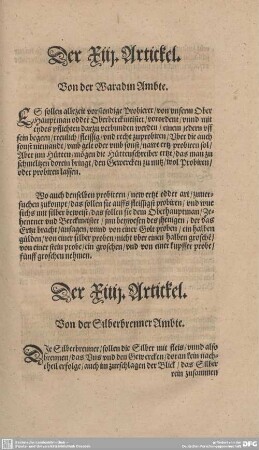 Der Xiij. Artickel.
Von der Waradin Ambte.
ES sollen allezeit vorstendige Probierer / von vnserm Ober
Hauptman odder Oberbergkmeister / vorordent / vnnd mit
eydes pflichten darzu verbunden werden / einem jedern vff
sein begern / treulich / fleissig / vnd recht zuprobiren / Vber die auch
sonst niemandt / vmb gelt oder vmb sonst / narre ertz probiren sol /
Aber jnn Hütten / mögen die Hüttenschreiber ertz / das man zu
schmeltzen dorein bringt / den Gewercken zu nutz / wol Probiren /
oder probiren lassen.
Wo auch denselben probirern / new ertze odder art / zuuer-
suchen zukompt / das sollen sie auffs fleissigst probiren / vnd wue
sichs mit silber beweist / das sollen sie dem Oberhauptman / Ze-
hentner vnd Bergkmeister / zur beweysen des jhenigen / der das
Ertz bracht / ansagen / vnnd von einer Golt proben / ein halben
gülden / von einer silber proben / nicht vber einen halben grosche /
von einer stein probe / ein groschen / vnd von einer kupffer probe /
fünff groschen nehmen.
Der Xiiij. Artickel.
Von der Silberbrenner Ambte.
DIe Silberbrenner / sollen die Silber mit fleis / vnnd also
brennen / das Vns vnd den Gewercken / doran kein nach-
theil erfolge / auch im zurschlagen der Blick / das Silber
rein zusammen